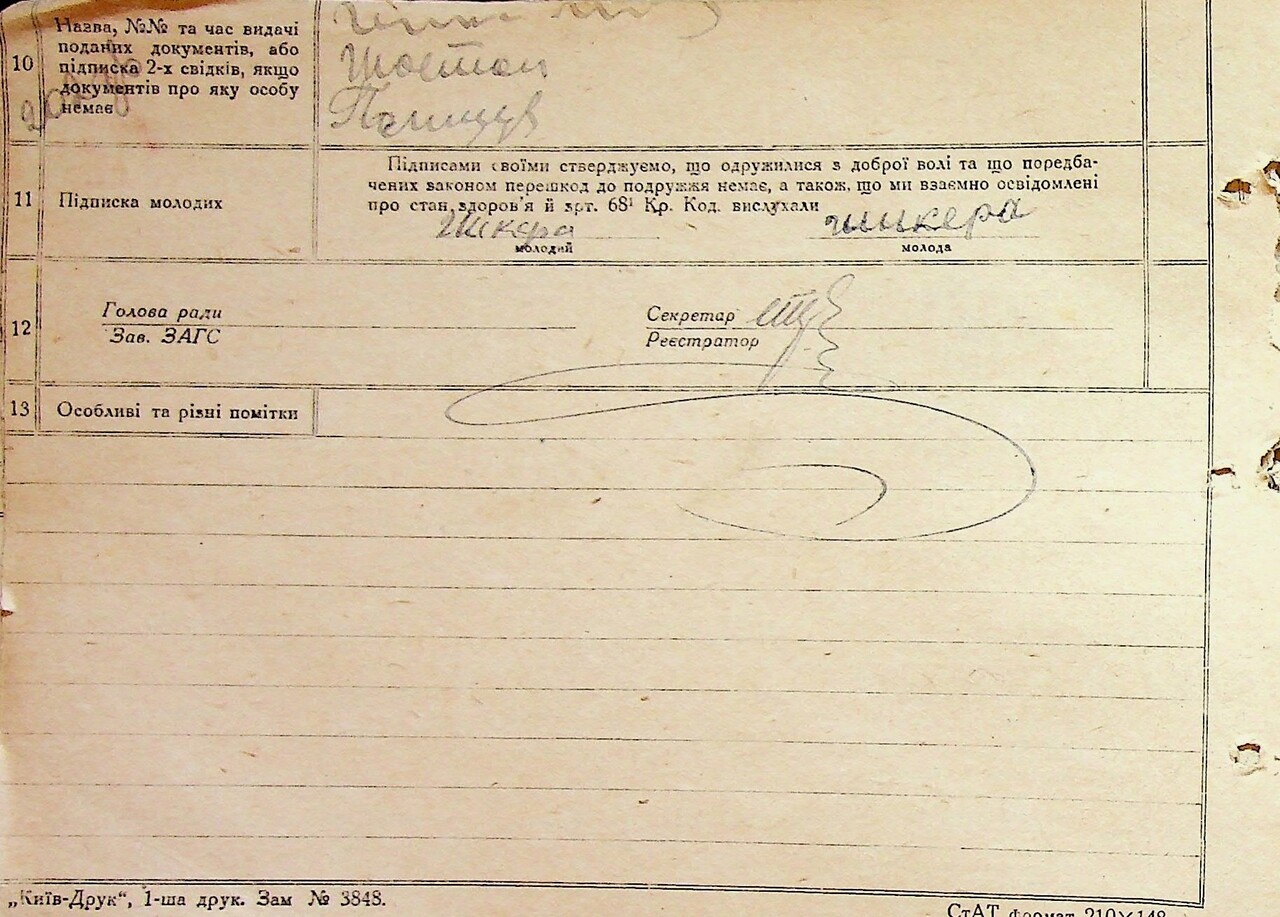 Назва, №№ та час видачі
поданих документів, або
10 підписка 2-х свідків, якщо
документів про яку особу
немає
Підписами своїми стверджуємо, що одружилися з доброї волі та що поредба-
11 Підписка молодих чених законом перешкод до подружжя немає, а також, що ми взаємно освідомлені
про стан здоров'я й арт. 68¹ Кр. Код. вислухали
Шкера шикера
молодий молода
12 Голова ради Секретар
Зав. ЗАГС Реєстратор
13 Особливі та різні помітки
„Київ-Друк“, 1-ша друк. Зам № 3848.
СтАТ формат 210×148